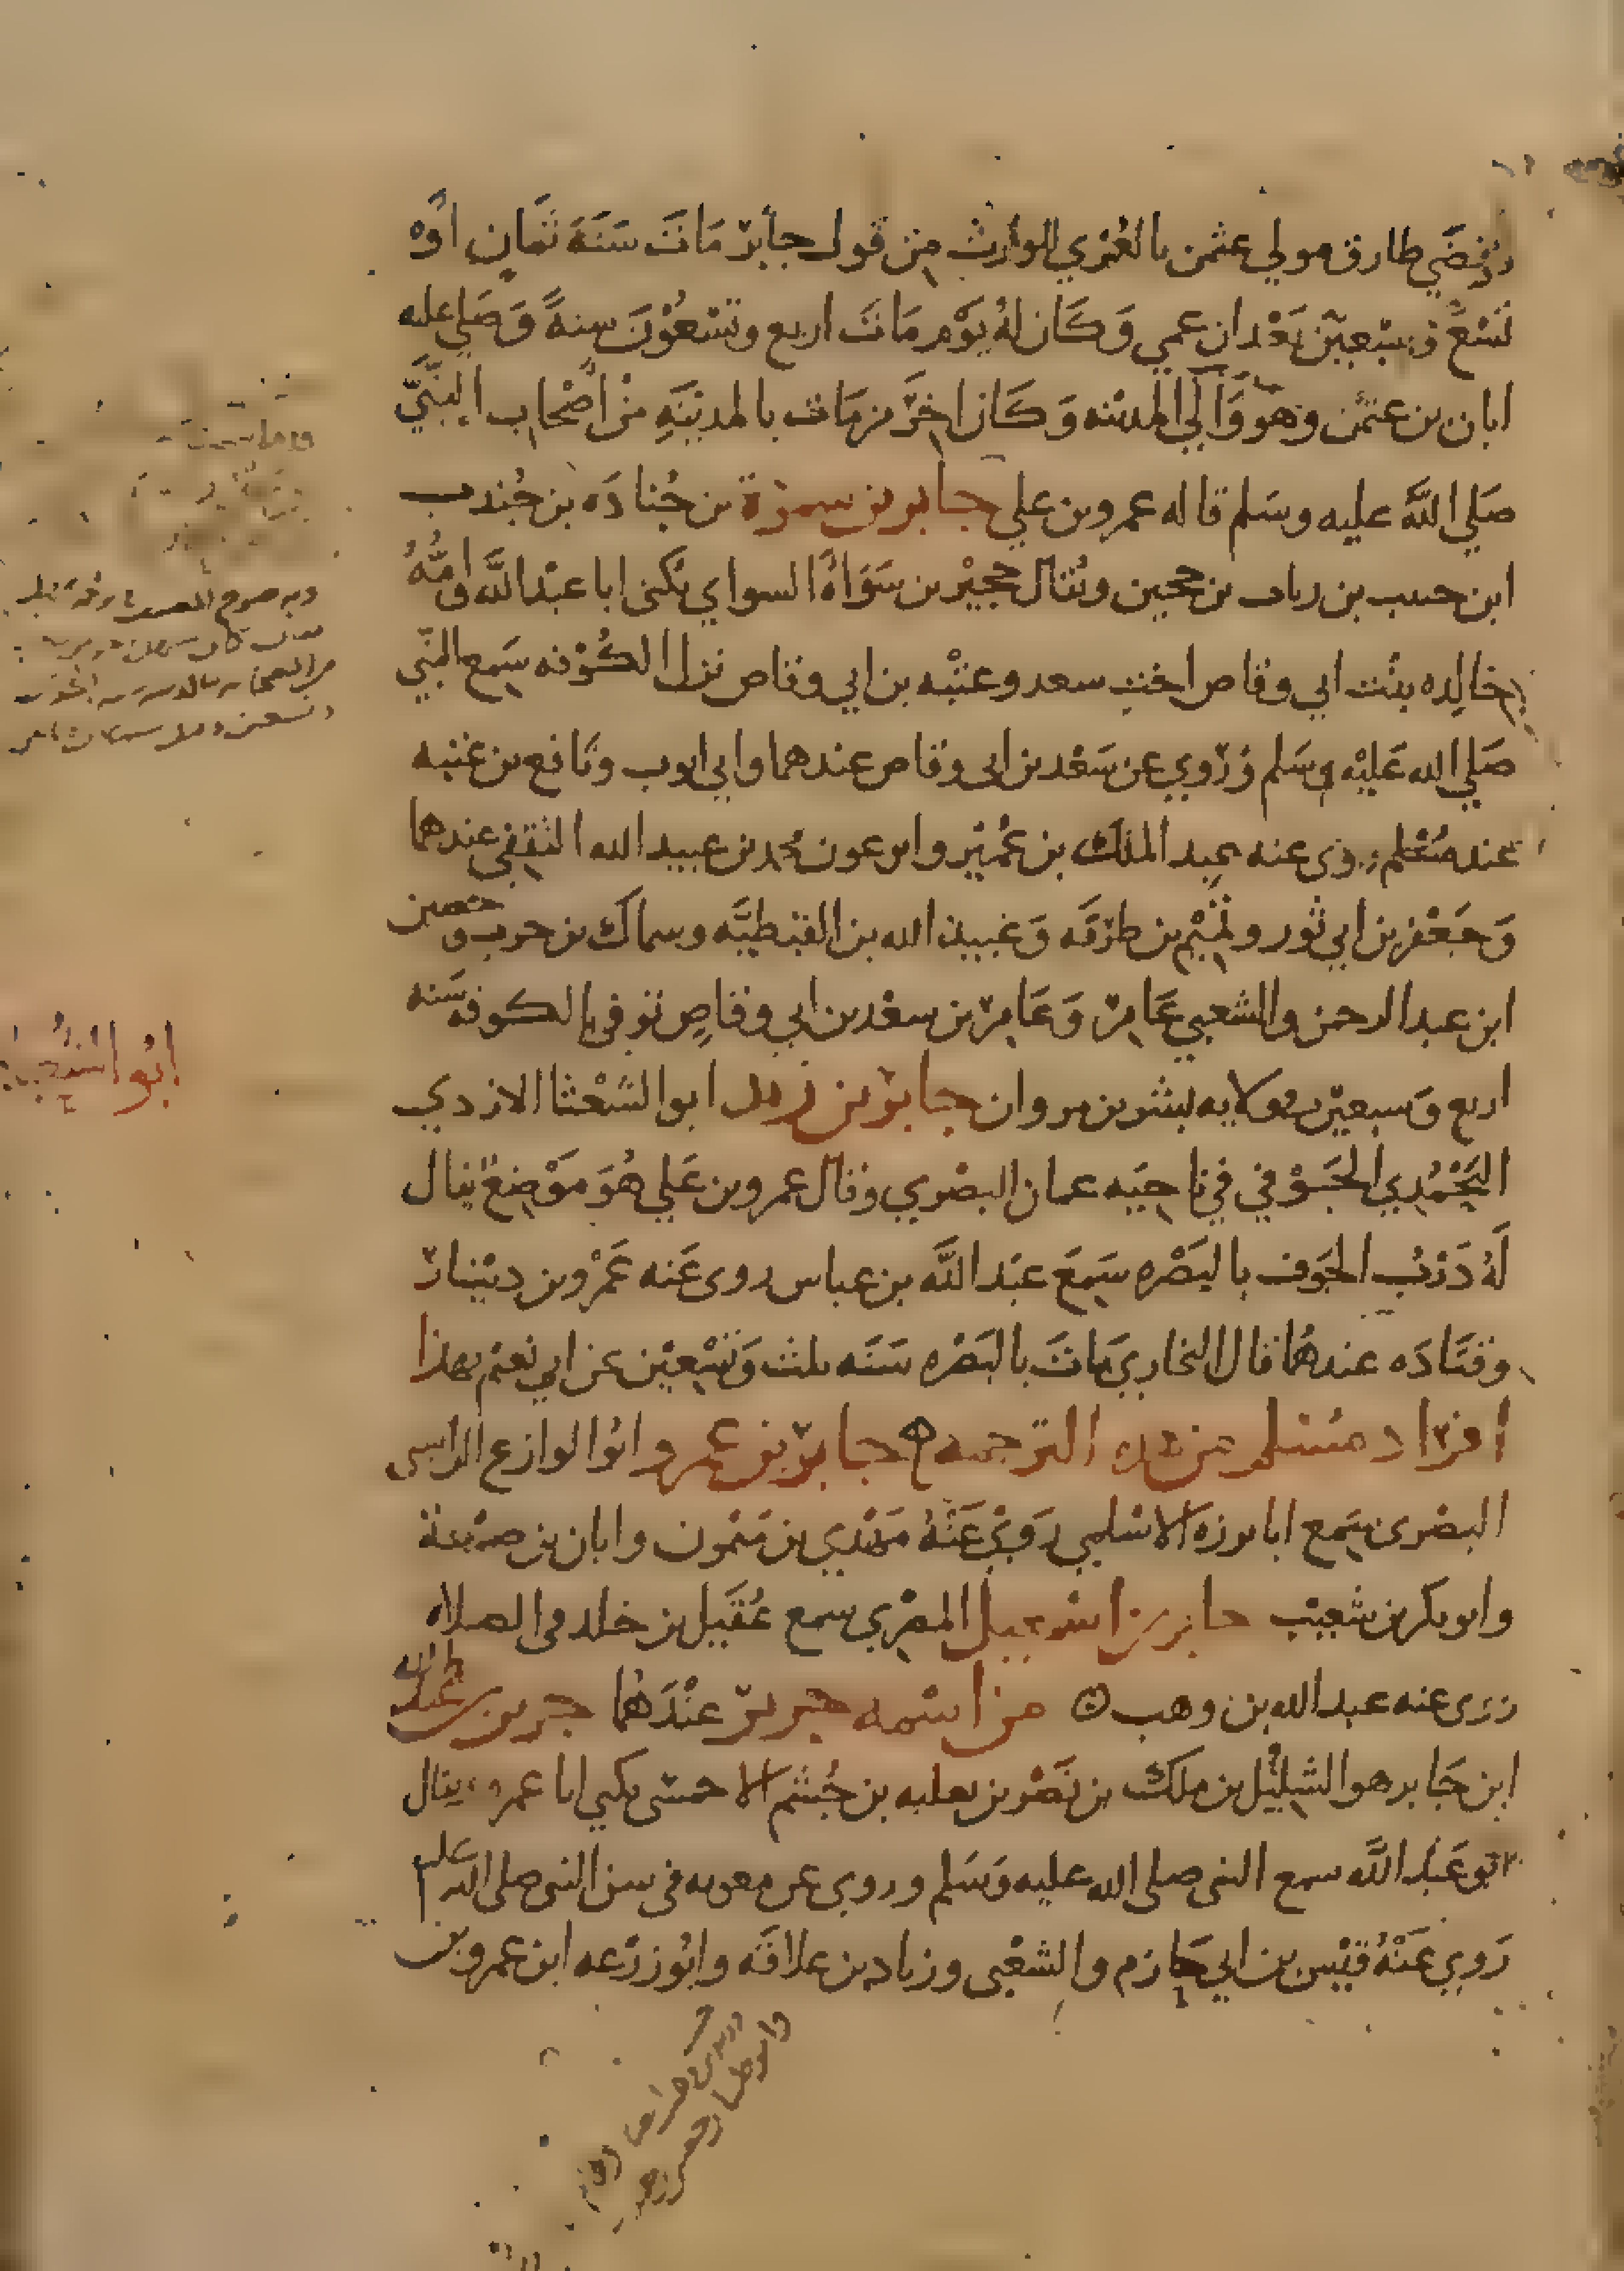 وقضي طارق مولي عثمن بالعمري للوارث من قول جابر مات سنة ثمان او
تسع وسبعين بعد ان عمي وكان له يوم مات اربع وتسعون سنة وصلي عليه
ابان بن عثمن وهو والي المدينه وكان اخر من مات بالمدينة من اصحاب النبي
صلي الله عليه وسلم قاله عمرو بن علي جابر بن سمرة بن جنادة بن جندب
ابن حبيب بن رباب بن حجين ويقال حجير بن سواة السواي يكنى ابا عبد الله وامه
خالده بنت ابي وقاص اخت سعد وعتبه بن ابي وقاص نزل الكوفه سمع النبي
صلي الله عليه وسلم وروي عن سعد بن ابي وقاص عندهما وابي ايوب ونافع بن عتبه
عند مسلم روى عنه عبد الملك بن عمير وابو عون محمد بن عبيد الله الثقفي عندهما
وجعفر بن ابي ثور وتميم بن طرفه وعبيد الله بن القبطيه وسماك بن حرب وحصين
ابن عبد الرحمن والشعبي عامر وعامر بن سعد بن ابي وقاص توفي بالكوفه سنه
اربع وسبعين في ولايه بشر بن مروان جابر بن زيد ابو الشعثا الازدي
اليحمدي الجوفي في ناحيه عمان البصري وقال عمرو بن علي هو موضع يقال
له درب الجوف بالبصره سمع عبد الله بن عباس روى عنه عمرو بن دينار
وقتاده عندهما قال البخاري مات بالبصره سنه ثلث وتسعين عن ابي نعيم بهذا
افراد مسلم من هذه الترجمه جابر بن عمرو ابو الوازع الراسبي
البصرى سمع ابا برزه الاسلمي روي عنه مهدي بن ميمون وابان بن صمعة
وابو بكر بن شعيب جابر بن اسمعيل المصري سمع عقيل بن خالد في الصلاه
روى عنه عبد الله بن وهب من اسمه جرير عندهما جرير بن عبد الله
ابن جابر هو الشليل بن ملك بن نصر بن ثعلبه بن جشم الاحمسي يكنى ابا عمرو ويقال
ابو عبد الله سمع النبي صلى الله عليه وسلم وروي عن معويه في سن النبي صلى الله عليه
روي عنه قيس بن ابي حازم والشعبي وزياد بن علاقه وابو زرعه ابن عمرو بن
ابو الشعثا